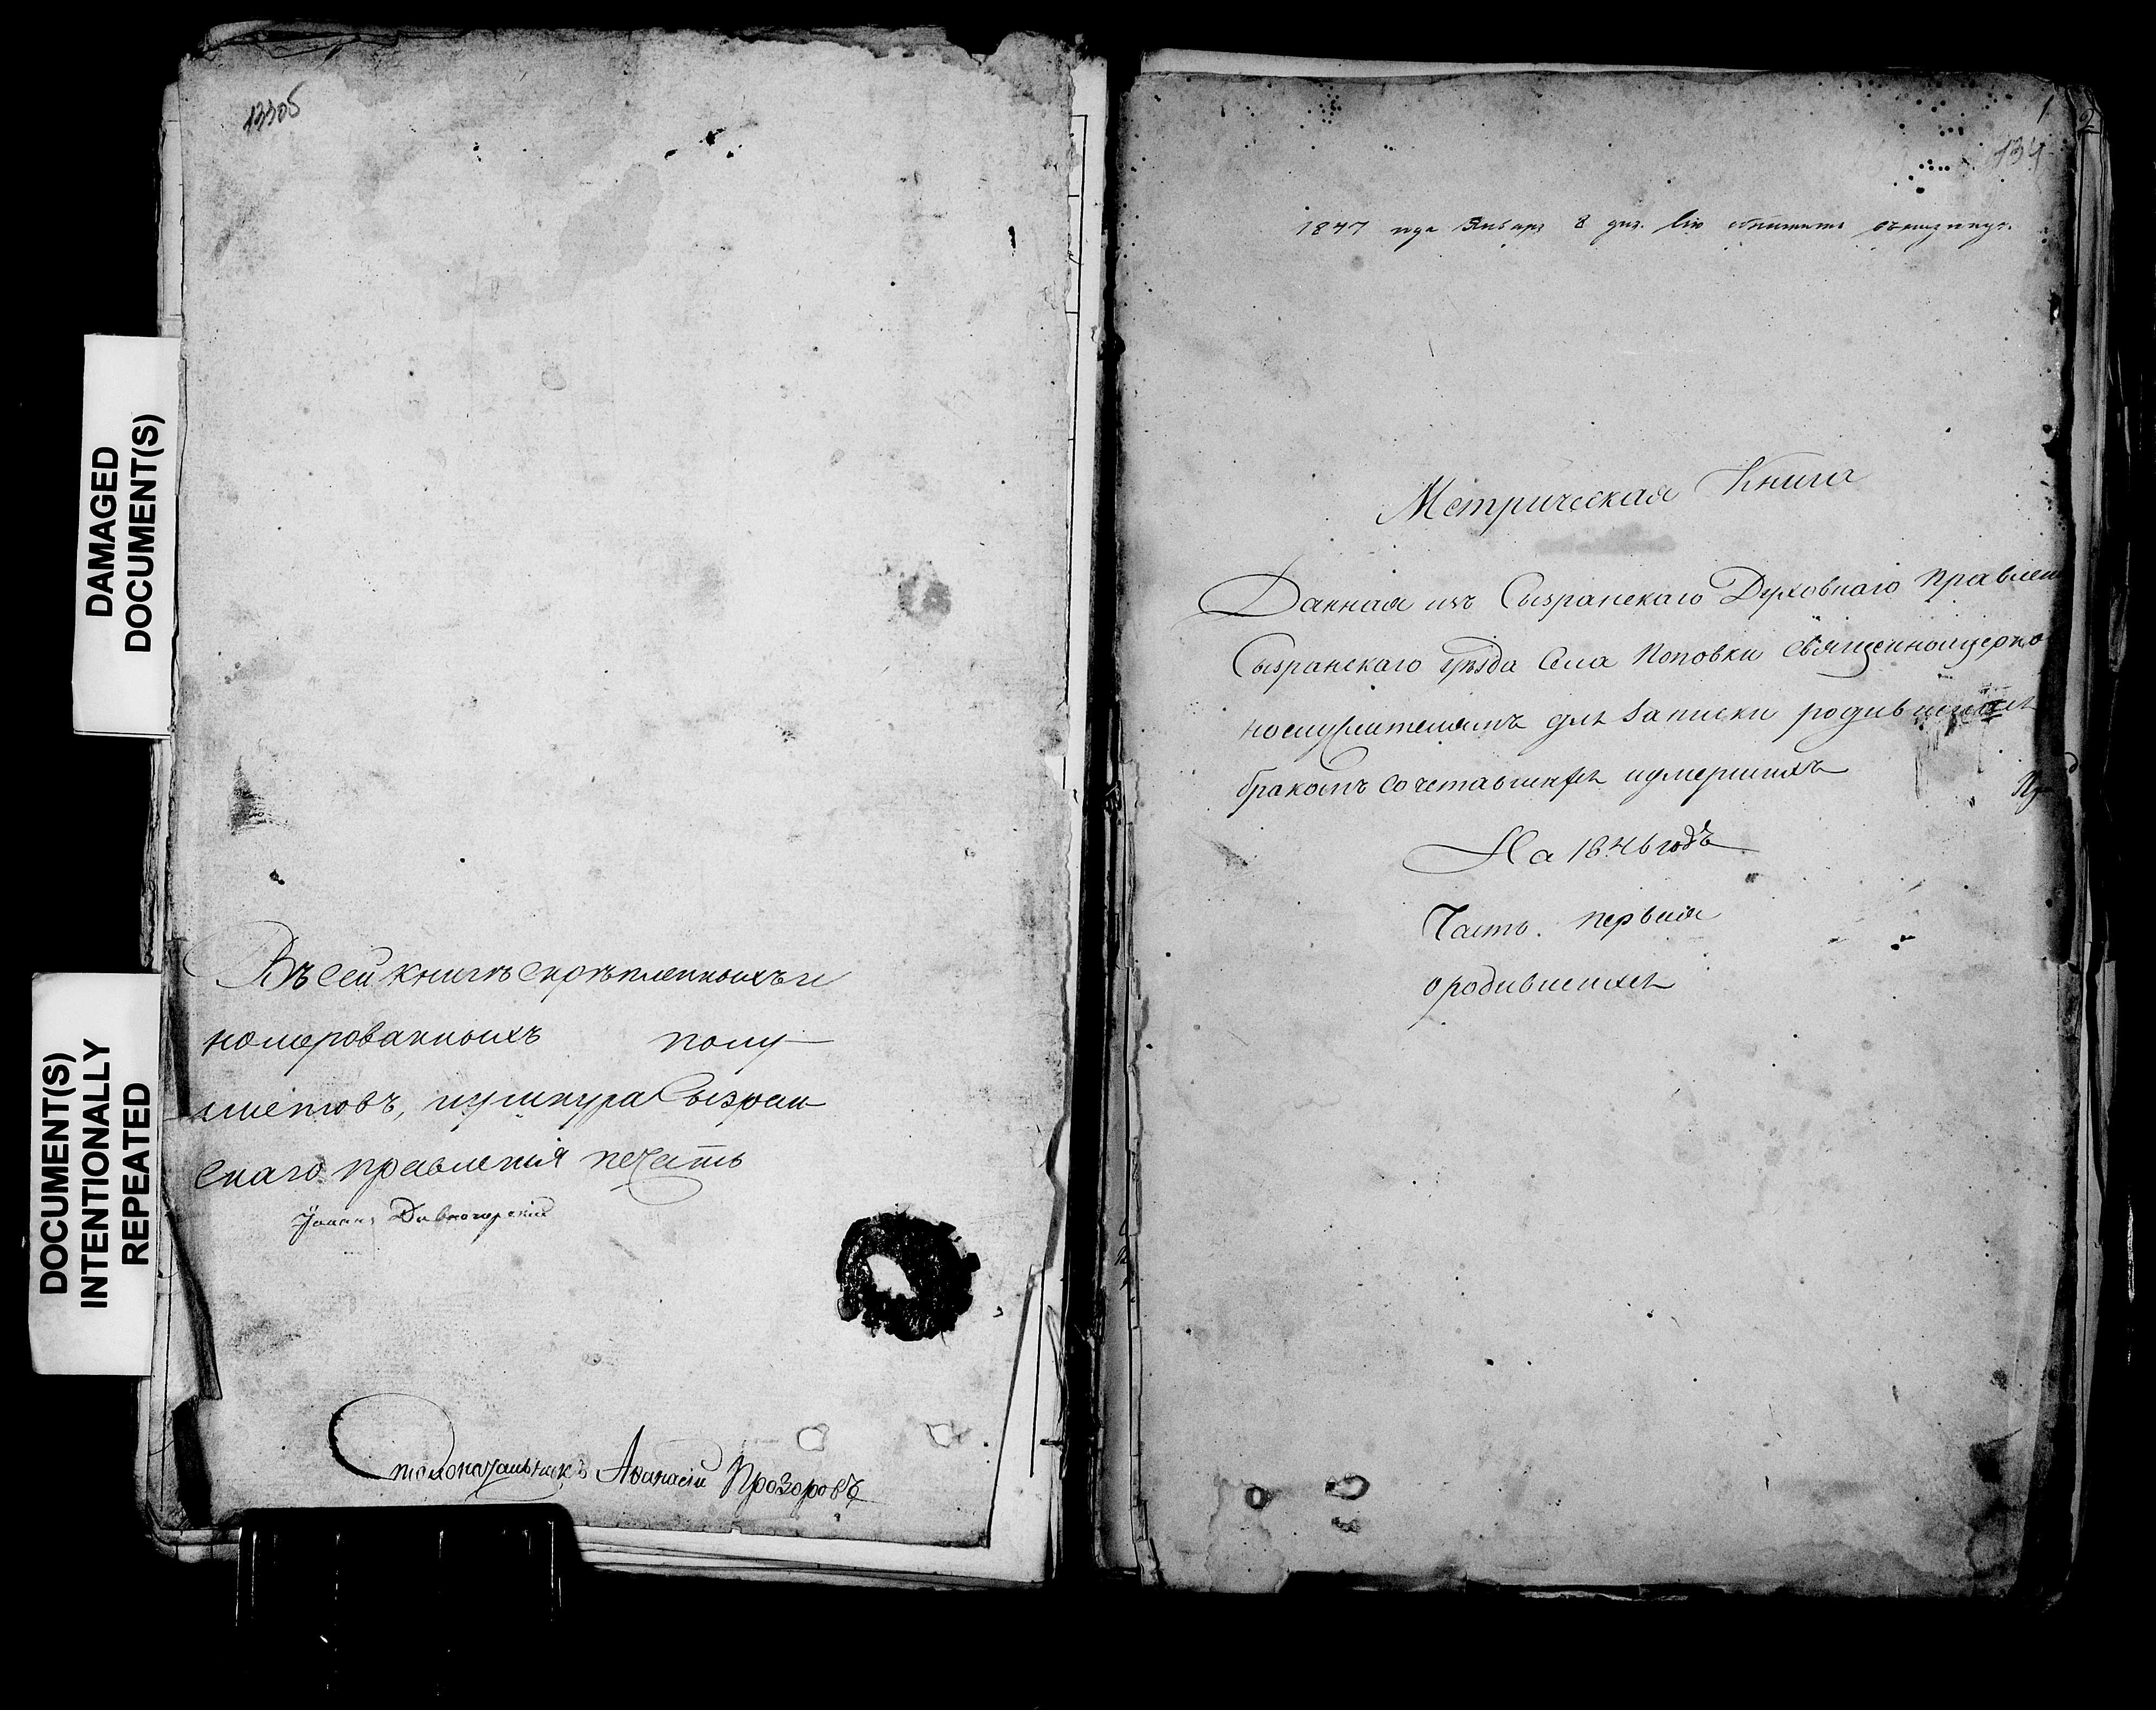 DAMAGED
DOCUMENT(S)
DOCUMENT(S)
INTENTIONALLY
REPEATED
13305
Въ сей книгѣ скрѣпленныхъ и
номерованныхъ полу
листовъ, и у шнура Сызран
скаго правленія печать
Іоаннъ Дивногорскій
Столоначальникъ Аѳанасій Прозоровъ
1
2
134
1847 года Января 8 дня.
Метрическая Книга
Данная изъ Сызранскаго Духовнаго Правлен
Сызранскаго уѣзда Села Поповки священноцерко
нослужителямъ для записки родившихся
бракомъ сочетавшихся и умершихъ
На 1846 годъ
Часть первая
о родившихся